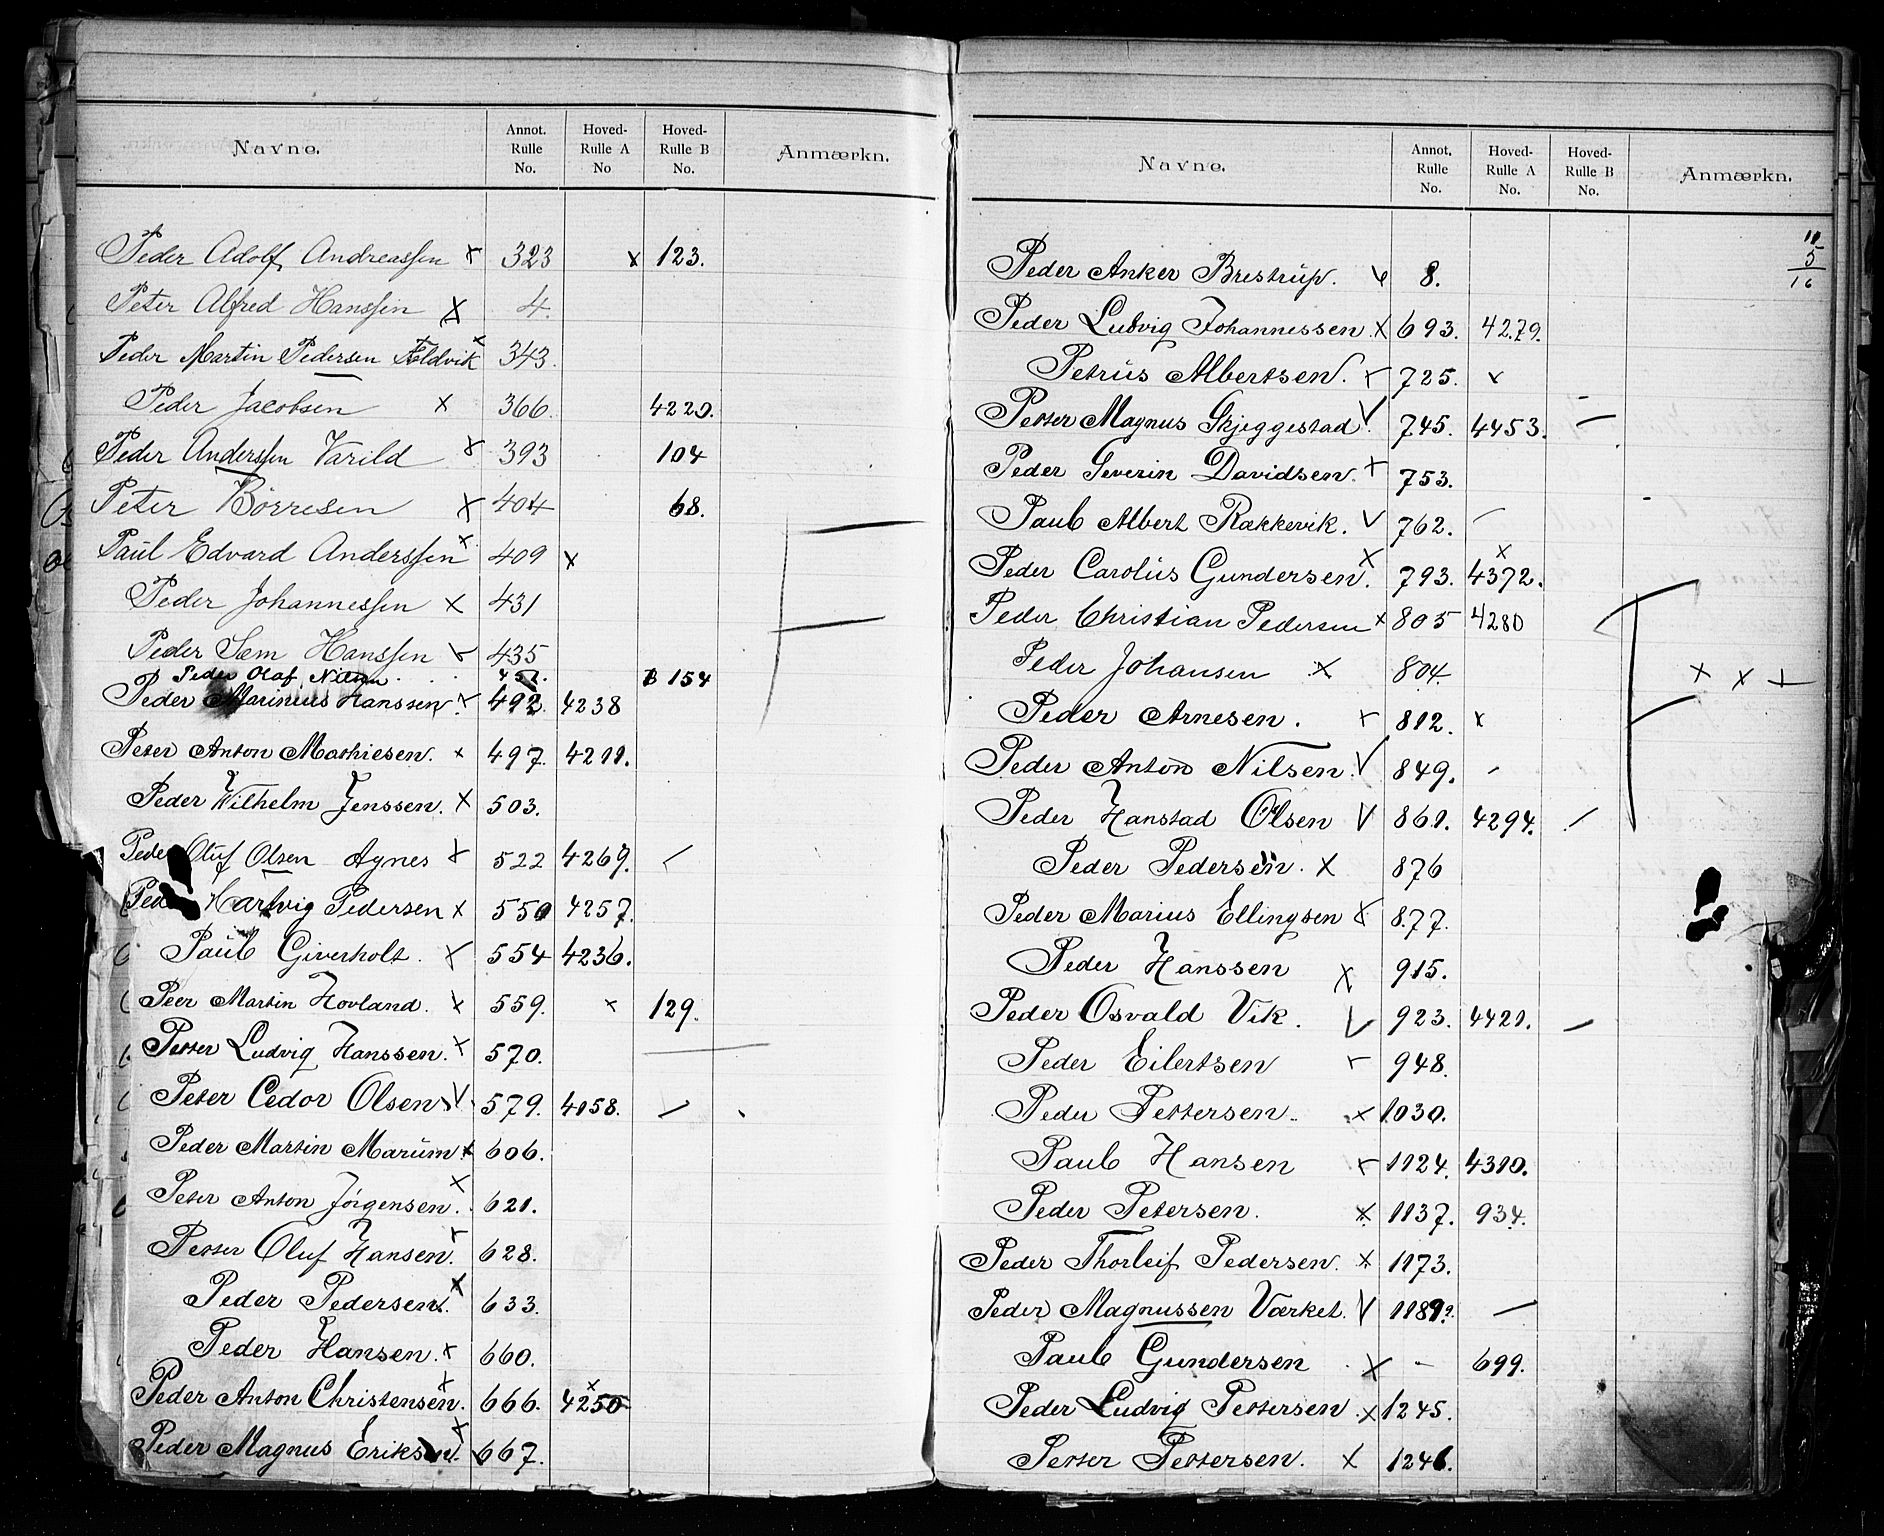 Navne. Annot. Rulle No. Hoved-Rulle A No Hoved-Rulle B No. Anmærkn.
Peder Adolf Andreassen x 323 x 123.
Peter Alfred Hanssen x 4.
Peder Martin Pedersen Foldvik x 343.
Peder Jacobsen x 366. 4220.
Peder Anderssen Varild x 393 104
Peter Börresen x 404 68.
Paul Edvard Anderssen x 409 x
Peder Johannessen x 431
Peder Sem Hanssen x 435
Peder Olaf Nilsen B 154
Peder Marinius Hanssen x 492 4238
Peter Anton Mathiesen. x 497. 4211.
Peder Wilhelm Jenssen. x 503.
Peder Oluf Olsen Agnes x 522 4269.
Peder Hartvig Pedersen x 550 4257.
Paul Giverholt. x 554 4236.
Peer Martin Hovland. x 559. x 129.
Petter Ludvig Hanssen. x 570.
Peter Cedor Olsen. V. 579. 4058. –
Peder Martin Marum x 606.
Peter Anton Jörgensen. x 621.
Petter Oluf Hansen. x 628.
Peder Pedersen. x 633.
Peder Hansen. x 660.
Peder Anton Christensen. x 666. x 4250
Peder Magnus Eriksen. x 667.
Navne. Annot. Rulle No. Hoved-Rulle A No. Hoved-Rulle B No. Anmærkn.
11
5
16
Peder Anker Brestrup. x 8.
Peder Ludvig Johannessen. x 693. 4279.
Petrus Albertsen. x 725. x
Petter Magnus Skjeggestad V. 745. 4453. –
Peder Severin Davidsen. x 753.
Paul Albert Rakkevik. V 762. –
Peder Carolus Gundersen. x 793. x 4372.
Peder Christian Pedersen x 805 4280
Peder Johansen x 804. x x x
Peder Arnesen. x 812. x
Peder Anton Nilsen. V 849. –
Peder Hanstad Olsen V 861. 4294. –
Peder Pedersen. x 876
Peder Marius Ellingsen x 877.
Peder Hanssen x 915.
Peder Osvald Vik. V 923. 4421. –
Peder Eilertsen x 948.
Peder Pettersen. x 1030.
Paul Hansen x 1124. 4310.
Peder Petersen. x 1137. 934.
Peder Thorleif Pedersen. x 1173.
Peder Magnussen Værket. V 1189? –
Paul Gundersen x – 699.
Peder Ludvig Pettersen. x 1245.
Petter Pettersen. x 1246.